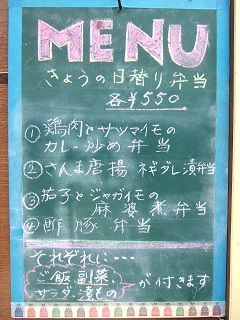 MENU
きょうの日替り弁当
各¥550
①鶏肉とサツマイモの
カレー炒め弁当
②さんま唐揚ネギダレ漬弁当
③茄子とジャガイモの
麻婆煮弁当
④酢豚弁当
それぞれに・・・
ご飯、副菜、
サラダ、漬もの
が付きます